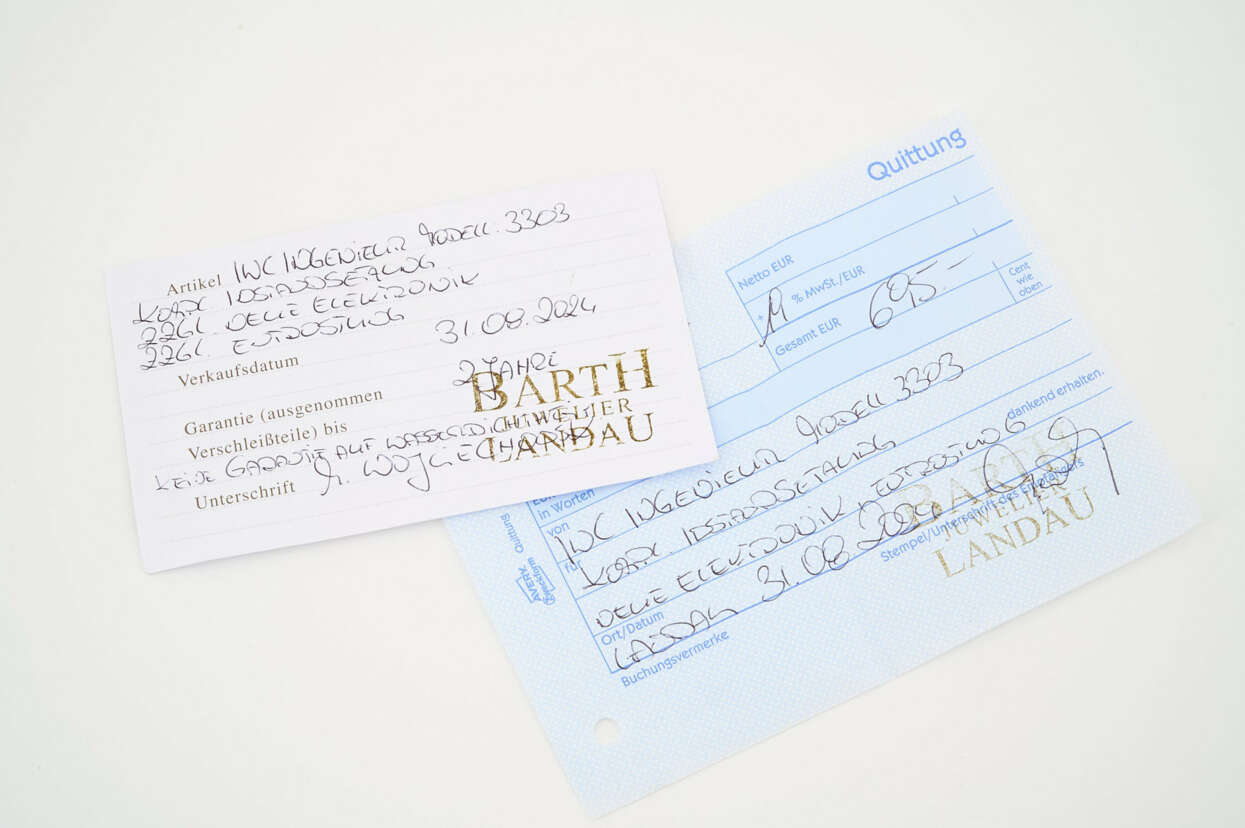 Artikel IWC INGENIEUR MODELL 3303
KOMPL. INSTANDSETZUNG
ZZGL. NEUE ELEKTRONIK
ZZGL. ENTROSTUNG
Verkaufsdatum 31.08.2024
Garantie (ausgenommen
Verschleißteile) bis 2 JAHRE
KEINE GARANTIE AUF WASSERDICHTIGKEIT
Unterschrift
BARTH
JUWELIER
LANDAU
Quittung
Netto EUR
+ 19 % MwSt./EUR
Gesamt EUR 695.-
Cent
wie
oben
in Worten
von
IWC INGENIEUR MODELL 3303
für
KOMPL. INSTANDSETZUNG
dankend erhalten.
NEUE ELEKTRONIK, ENTROSTUNG
Ort/Datum
LANDAU 31.08.2024
Stempel/Unterschrift des Empfängers
BARTH
JUWELIER
LANDAU
Buchungsvermerke
AVERY
Zweckform Quittung